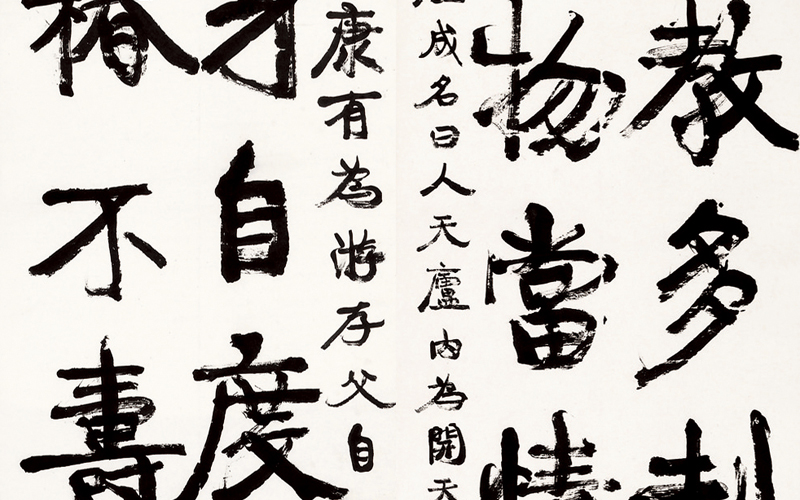 教多
物當情
成名曰人天廬內為開天
康有為游存父自
才自度
不壽